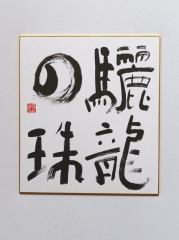 驪龍
の珠